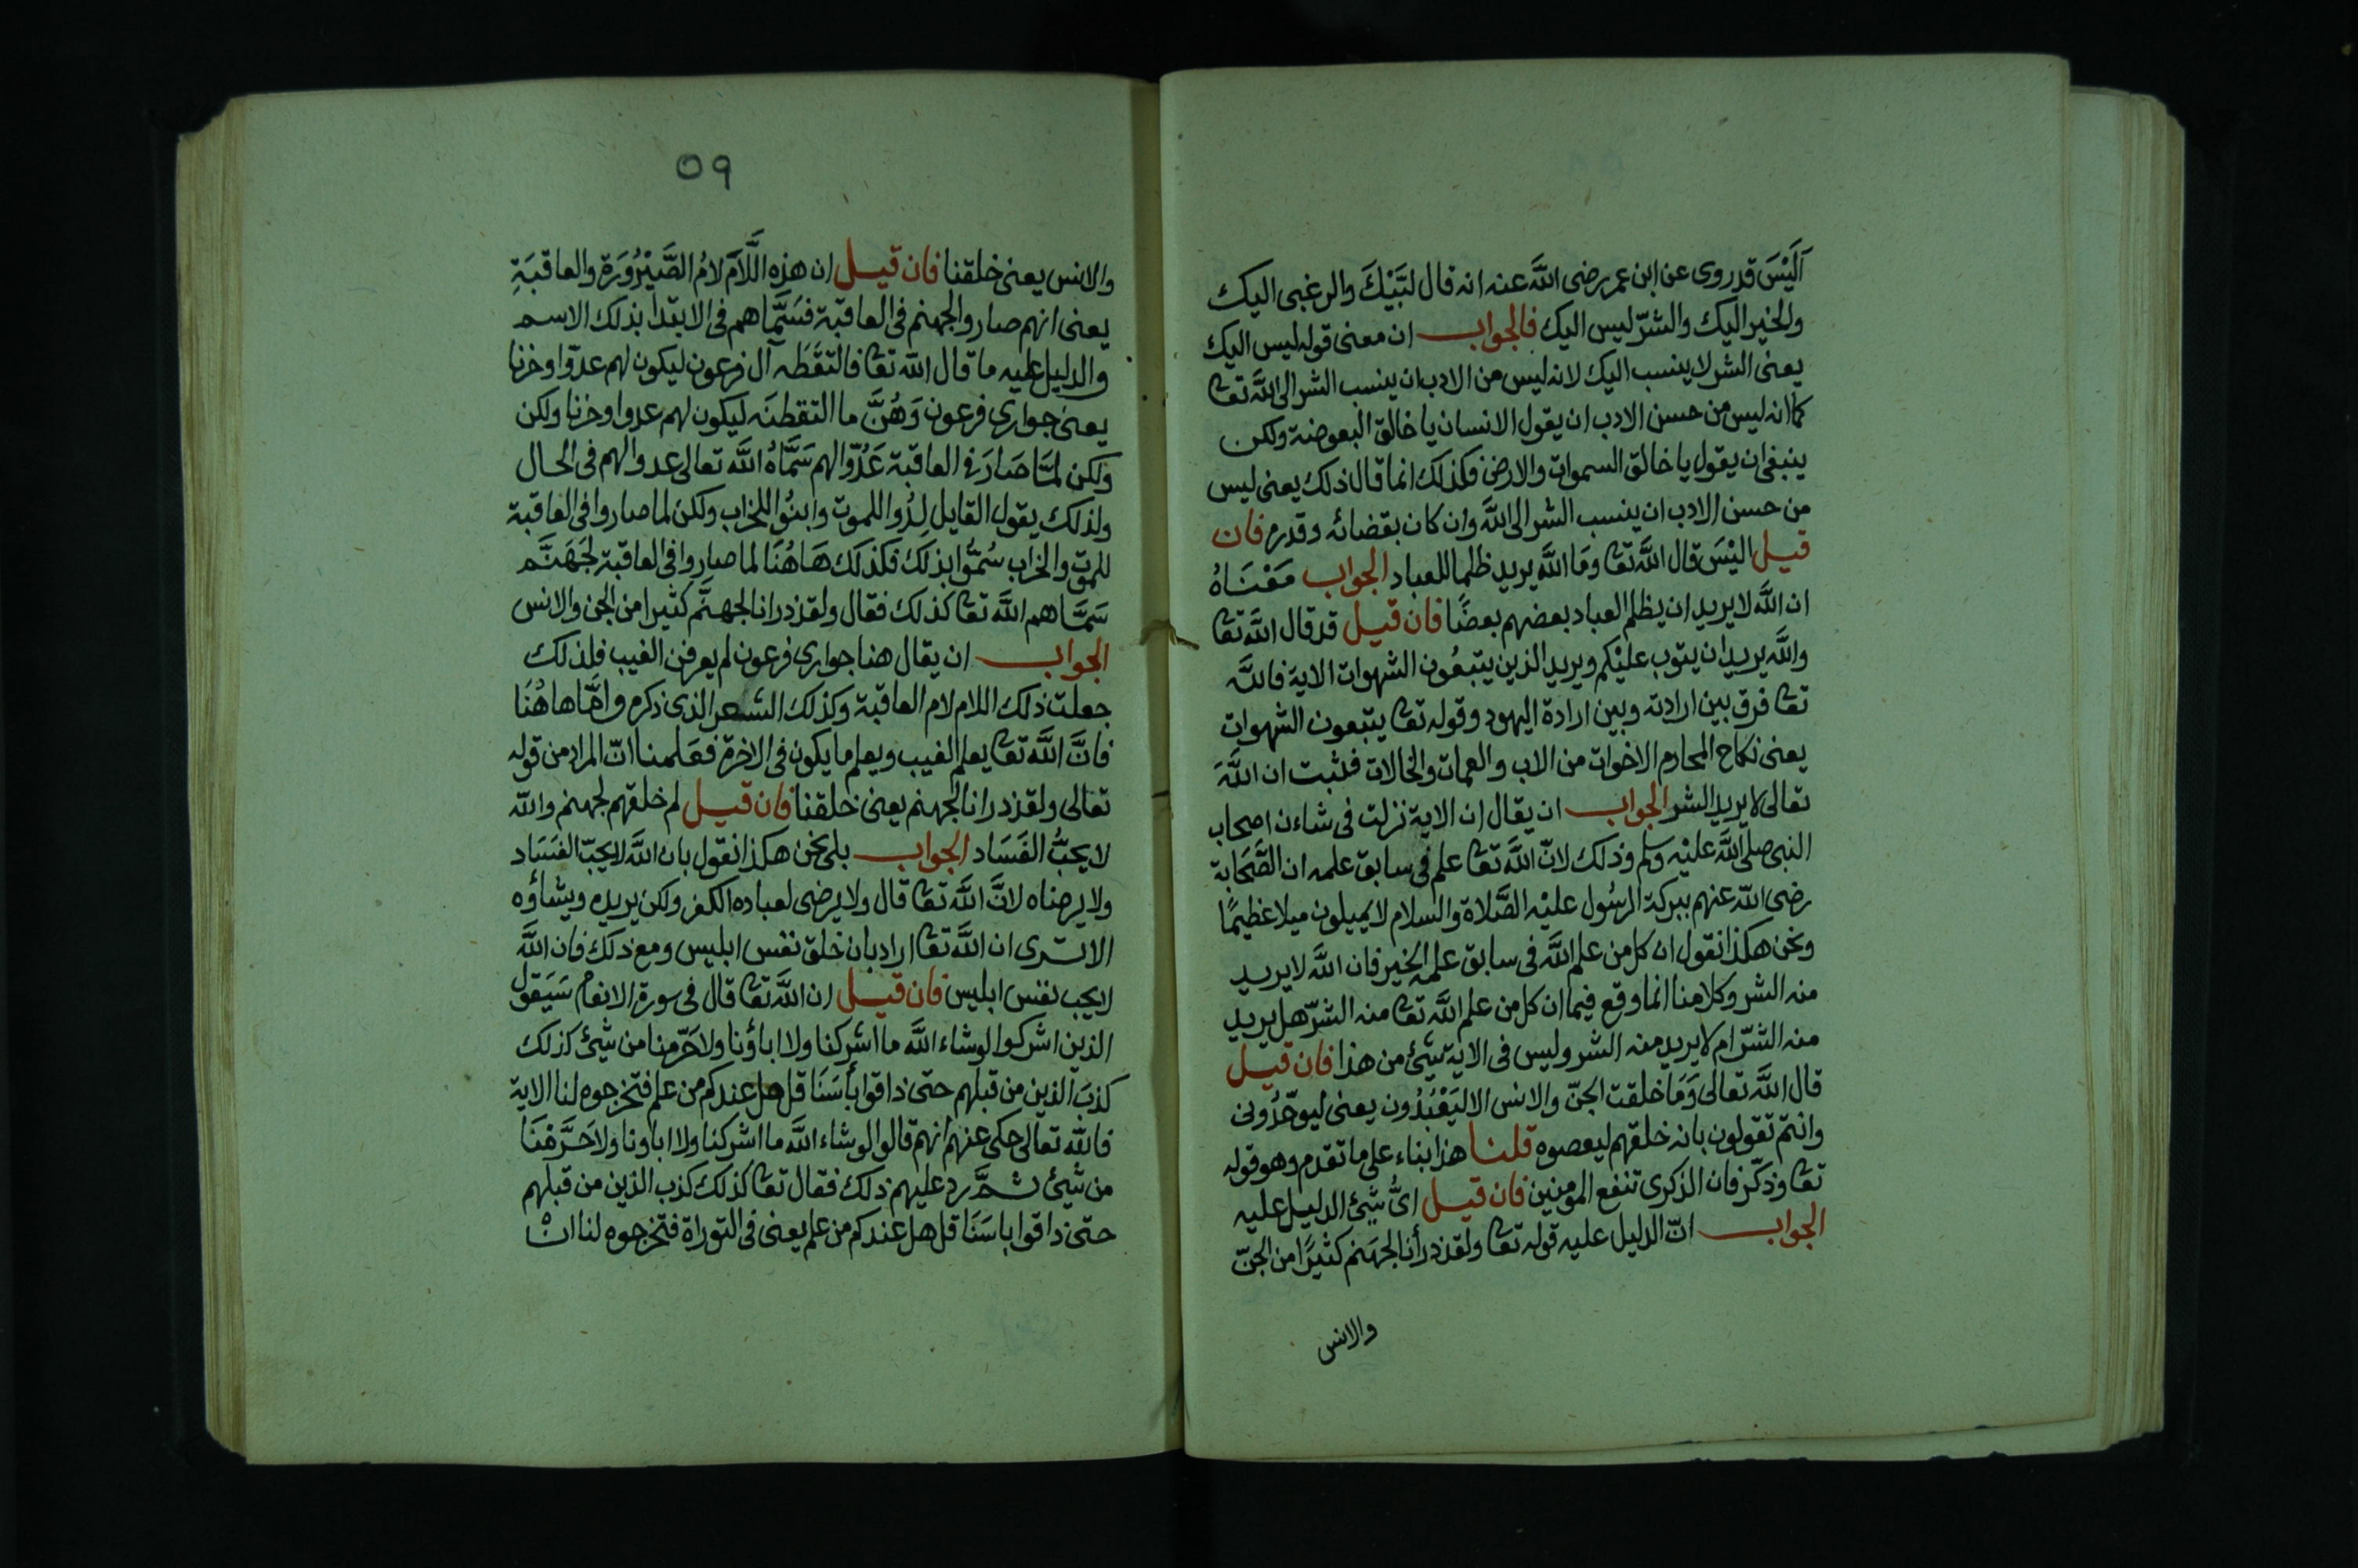 آلَيْسَ قد روى عن ابن عمر رضى اللّٰه عنه انه قال لبَّيْكَ والرغبى اليك
والخير اليك والشرّ ليس اليك فالجواب ان معنى قوله ليس اليك
يعنى الشر لا ينسب اليك لانه ليس من الادب ان ينسب الشر الى اللّٰه تعا
كما انه ليس من حسن الادب ان يقول الانسان يا خالق البعوضة ولكن
ينبغى ان يقول يا خالق السموات والارض فكذلك انما قال ذلك يعنى ليس
من حسن الادب ان ينسب الشر الى اللّٰه وان كان بقضائه وقدره فان
قيل اليْسَ قال اللّٰه تعا وَمَا اللّٰه يريد ظلما للعباد الجواب مَعْنَاهُ
ان اللّٰه لا يريد ان يظلم العباد بعضهم بعضًا فان قيل قد قال اللّٰه تعا
واللّٰه يريد ان يتوب عليْكم ويريد الذين يتبعُون الشهوات الاية فاللّٰه
تعا فرق بين ارادته وبين ارادة اليهود وقوله تعا يتبعون الشهوات
يعنى نكاح المحارم الاخوات من الاب والعمات والخالات فثبت ان اللّٰهَ
تعالى لا يريد الشر الجواب ان يقال ان الاية نزلت فى شاءن اصحاب
النبى صلى اللّٰه عليْه وسلم وذلك لانّ اللّٰه تعا علم فى سابق علمه ان الصَّحَابة
رضى اللّٰه عنهم ببركة الرسُول عليْه الصَّلاة والسلام لا يميلون ميلا عظيمًا
ونحن هكذا نقول ان كل من علم اللّٰه فى سابق علمه الخير فان اللّٰه لا يريد
منه الشر وكلامنا انما وقع فيما ان كل من علم اللّٰه تعا منه الشرّ هل يريد
منه الشرّ ام لا يريد منه الشر وليس فى الاية شئ من هذا فان قيل
قال اللّٰه تعالى وَمَا خلقت الجنّ والانس الا ليَعْبُدُون يعنى ليوحّدُونى
وانتم تقولون بانه خلقهم ليعصوه قلنا هذا بناء على ما تقدم وهو قوله
تعا وذكّر فان الذكرى تنفع المومنين فان قيل اىُّ شئ الدليل عليه
الجواب انّ الدليل عليه قوله تعا ولقد ذرأنا لجهنم كثيرًا من الجنّ
والانس
٥٩
والانس يعنى خلقنا فان قيل ان هذه اللَّامَ لامُ الصَّيْرُورَة والعاقبَةِ
يعنى انهم صاروا لجهنم فى العاقبة فسَمَّاهم فى الابتدا بذلك الاسم
والدليل عليه ما قال اللّٰه تعا فالتقَطَه آل فرعون ليكون لهم عدوّا وحزنا
يعنى جوارى فرعون وَهُنَّ ما التقطنَه ليكون لهم عدوا وحزنا ولكن
ولكن لمَّا صَارَ فى العاقبة عَدُوّا لهم سَمَّاهُ اللّٰه تعالى عدوا لهم فى الحال
ولذلك يقول القايل لِدُوا للموت وابنُوا للخراب ولكن لما صاروا فى العاقبة
للموت والخراب سُمُّوا بذلك فكذلك هَاهُنَا لما صاروا فى العاقبة لجَهَنَّم
سَمَّاهم اللّٰه تعا كذلك فقال ولقد ذرانا لجهنَّم كثيرا من الجن والانس
الجواب ان يقال هنا جوارى فرعون لم يعرفن الغيب فلذلك
جعلت ذلك اللام لام العاقبة وكذلك الشعر الذى ذكره وامَّا هاهُنَا
فانَّ اللّٰه تعا يعلم الغيب ويعلم ما يكون فى الاخرة فعَلمنا انّ المراد من قوله
تعالى ولقد ذرانا لجهنم يعنى خلقنا فان قيل لم خلقهم لجهنم واللّٰه
لا يحبُّ الفَسَاد الجواب بلى نحن هكذا نقول بان اللّٰه لا يحبّ الفسَاد
ولا يرضاه لانَّ اللّٰه تعا قال ولا يرضى لعباده الكفر ولكن يريده ويشاؤه
الا ترى ان اللّٰه تعا اراد بان خلق نفس ابليس ومع ذلك فان اللّٰه
لا يحب نفس ابليس فان قيل ان اللّٰه تعا قال فى سورة الانعام سَيَقول
الذين اشركوا لو شاء اللّٰه ما اشركنا ولا اباؤنا ولا حَرّمنا من شئ كذلك
كذبَ الذين من قبلهم حتى ذاقوا بأسَنَا قل هل عندكم من علم فتخرجوه لنا الاية
فاللّٰه تعالى حكى عنهم انهم قالوا لو شاء اللّٰه ما اشركنا ولا اباونا ولا حَرَّمْنَا
من شئ ثمَّ رد عليهم ذلك فقال تعا كذلك كذب الذين من قبلهم
حتى ذاقوا باسَنَا قل هل عندكم من علم يعنى فى التوراة فتخرجوه لنا انْ